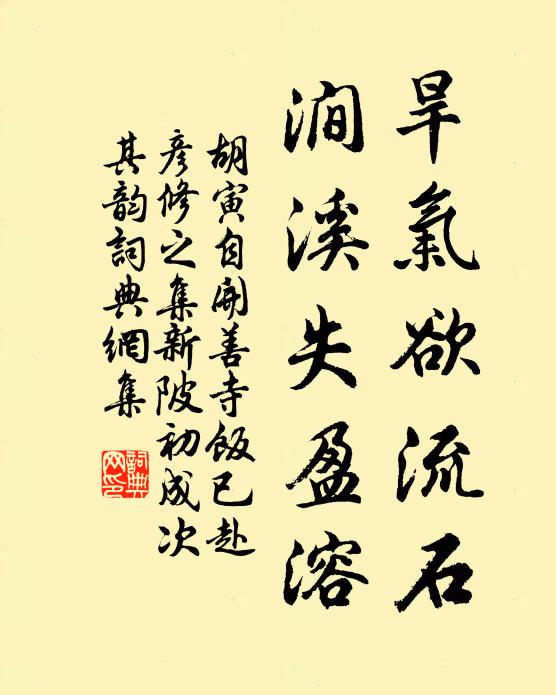 旱氣欲流石
澗溪失盈溶
胡寅自開善寺飯已赴
彥修之集新陂初成次
其韵詞典網集
詞典
网印